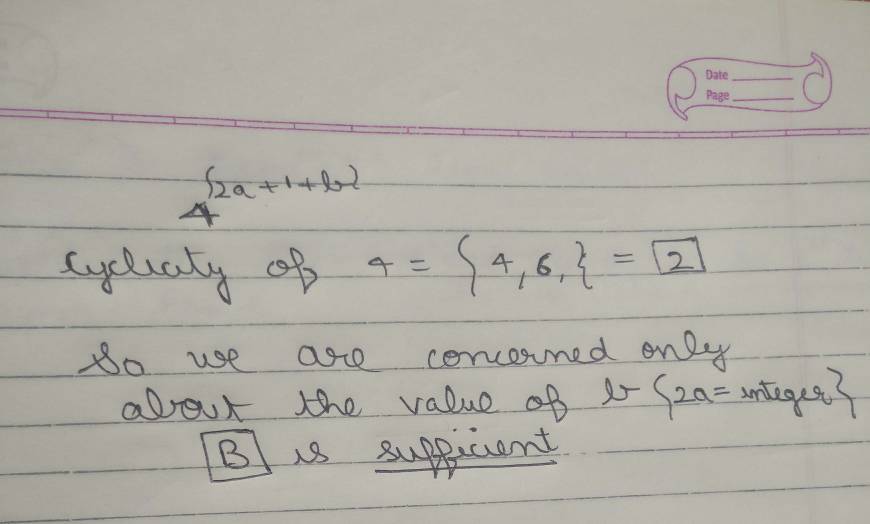 Date
Page
4^{2a+1+b}
Cyclicity of 4 = {4,6,} = 2
So we are concerned only
about the value of b {2a= integer}
B is sufficient